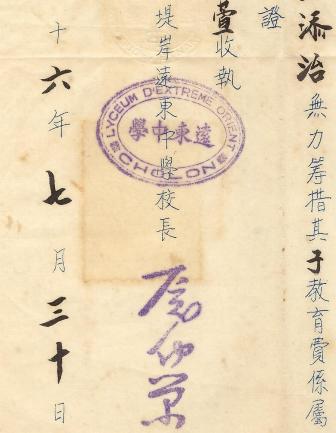 添治無力籌措其于教育費係屬
證
萱收執
堤岸遠東中學校長
十六年七月三十日
LYCEUM D'EXTREME ORIENT
遠東中學
CHOLON